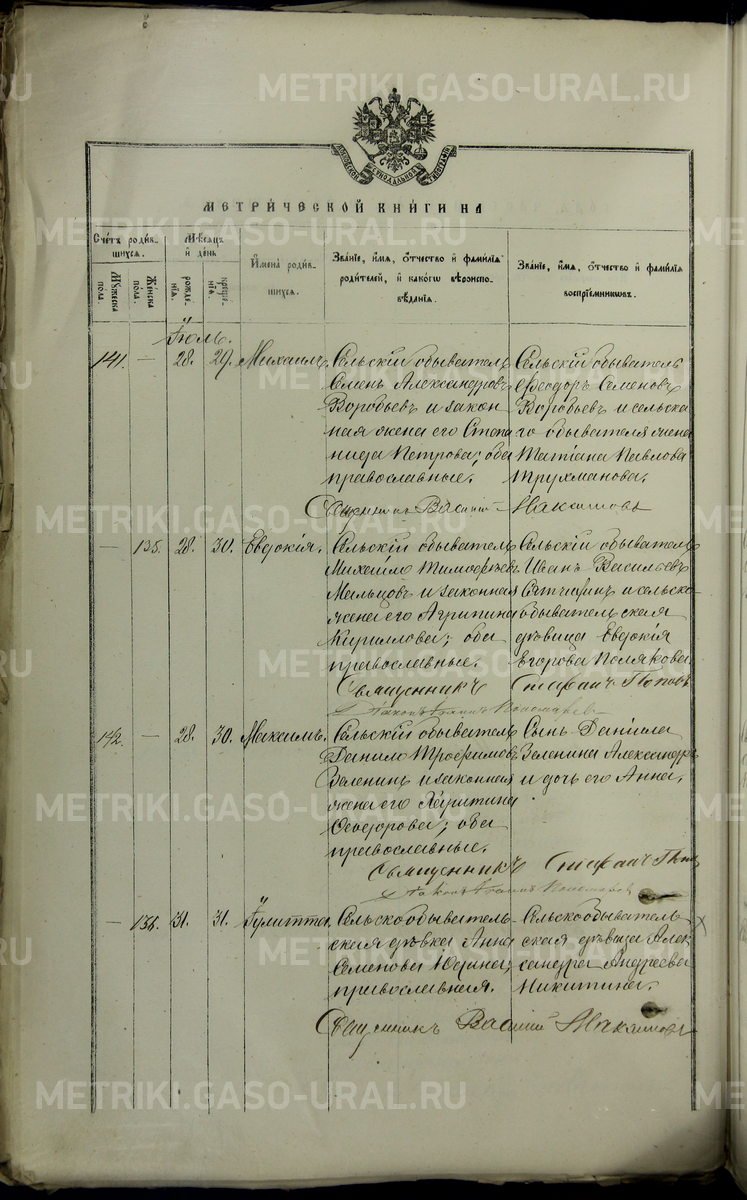 МЕТРИ́ЧЕСКОЙ КНИ́ГИ НА
Сче́тъ роди́вшихся.
Му́жеска пола.
Же́нска пола.
Мѣ́сяцъ и҆ день
рожде́нїѧ.
креще́нїѧ.
И҆мена̀ роди́вшихся.
Зва́нїе, и҆́мѧ, ѻ҆́тчество и҆ фами́лїѧ роди́телей, и҆ како́гѡ вѣроисповѣ́данїѧ.
Зва́нїе, и҆́мѧ, ѻ҆́тчество и҆ фами́лїѧ воспрїе́мникѡвъ.
Іюль.
141. — 28. 29. Михаилъ.
Сельскій обыватель
Семенъ Александровъ
Воробьевъ и закон
ная жена его Степа
нида Петрова; оба
православные.
Сельскій обыватель
Ѳеодоръ Семеновъ
Воробьевъ и сельска
го обывателя жена
Татіана Павлова
Трухманова.
Священникъ Василій Максимовъ
— 135. 28. 30. Евдокія.
Сельскій обыватель
Михайло Тимофеевъ
Мальцовъ и законная
жена его Агрипина
Кириллова; оба
православные.
Сельскій обыватель
Иванъ Васильевъ
и сельско
обывательская
дѣвица Евдокія
Егорова Полякова.
Священникъ Стефанъ Поповъ
Діаконъ Іоаннъ Пономаревъ
142. — 28. 30. Максимъ.
Сельскій обыватель
Данило Трофимовъ
Зеленинъ и законная
жена его Харитина
Ѳеодорова; оба
православные.
Сынъ Даніила
Зеленина Александръ
и дочь его Анна.
Священникъ Стефанъ Поповъ
Діаконъ Іоаннъ Пономаревъ
— 136. 31. 31. Іулитта.
Сельскообыватель
ская дѣвка Анна
Семенова Юдина;
православная.
Сельскообыватель
ская дѣвица Алек
сандра Андреева
Никитина.
Священникъ Василій Максимовъ
METRIKI.GASO-URAL.RU